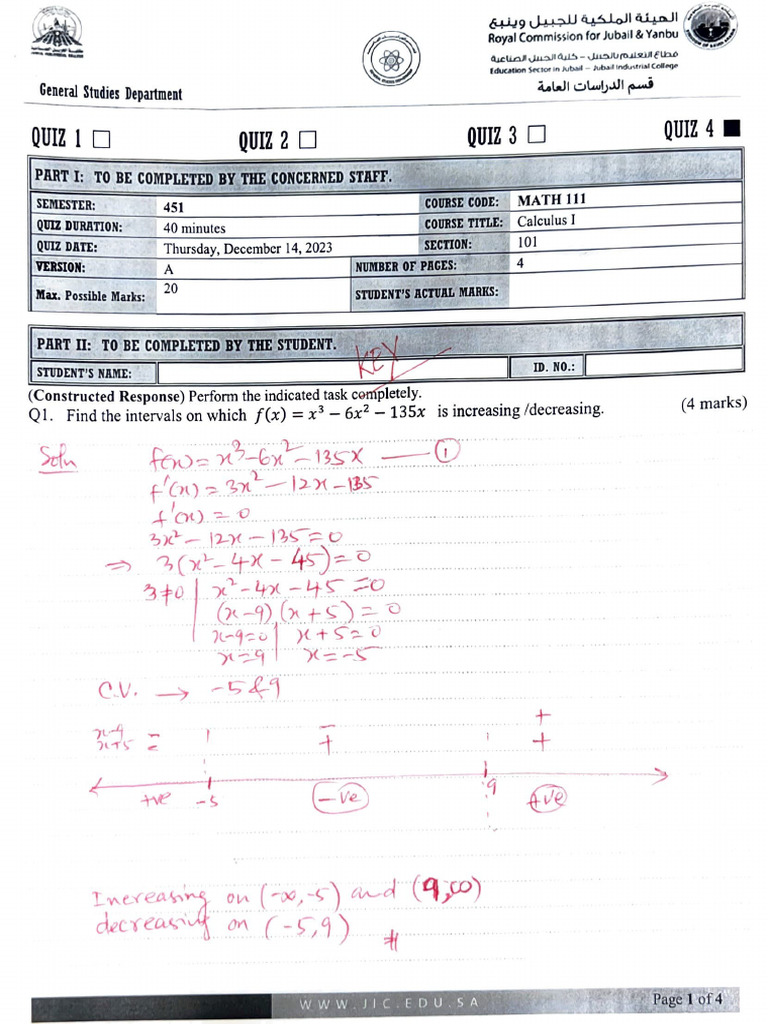 الهيئة الملكية للجبيل وينبع
Royal Commission for Jubail & Yanbu
قطاع التعليم بالجبيل – كلية الجبيل الصناعية
Education Sector in Jubail – Jubail Industrial College
قسم الدراسات العامة
General Studies Department
QUIZ 1 ☐ QUIZ 2 ☐ QUIZ 3 ☐ QUIZ 4 ■
PART I: TO BE COMPLETED BY THE CONCERNED STAFF.
SEMESTER: 451 COURSE CODE: MATH 111
QUIZ DURATION: 40 minutes COURSE TITLE: Calculus I
QUIZ DATE: Thursday, December 14, 2023 SECTION: 101
VERSION: A NUMBER OF PAGES: 4
Max. Possible Marks: 20 STUDENT'S ACTUAL MARKS:
PART II: TO BE COMPLETED BY THE STUDENT.
KEY
STUDENT'S NAME: ID. NO.:
(Constructed Response) Perform the indicated task completely.
Q1. Find the intervals on which f(x) = x³ − 6x² − 135x is increasing /decreasing. (4 marks)
Soln f(x) = x³ − 6x² − 135x — ①
f'(x) = 3x² − 12x − 135
f'(x) = 0
3x² − 12x − 135 = 0
⇒ 3(x² − 4x − 45) = 0
3 ≠ 0 | x² − 4x − 45 = 0
(x − 9) (x + 5) = 0
x − 9 = 0 | x + 5 = 0
x = 9 | x = −5
C.V. → −5 & 9
x−9 = − +
x+5 = + +
+ve −5 −ve 9 +ve
Increasing on (−∞, −5) and (9, ∞)
decreasing on (−5, 9) #
WWW.JIC.EDU.SA
Page 1 of 4